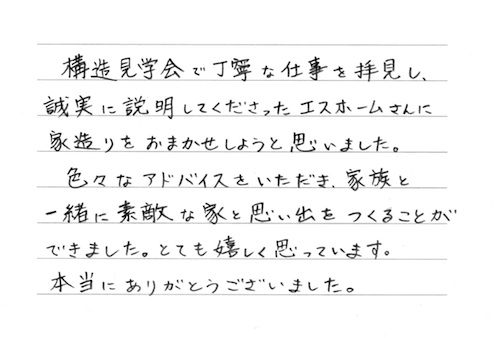 構造見学会で丁寧な仕事を拝見し、
誠実に説明してくださったエスホームさんに
家造りをおまかせしようと思いました。
色々なアドバイスをいただき、家族と
一緒に素敵な家と思い出をつくることが
できました。とても嬉しく思っています。
本当にありがとうございました。